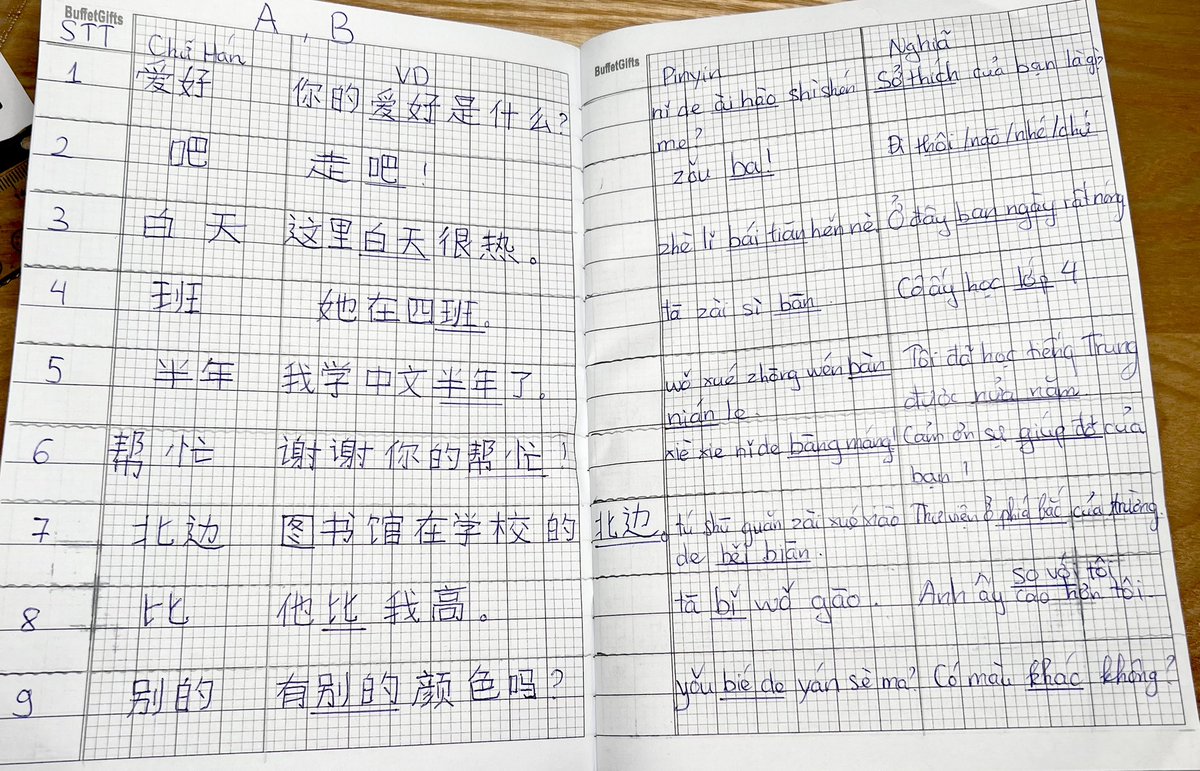 BuffetGifts
A, B
STT Chữ Hán VD
1 爱好 你的爱好是什么?
2 吧 走吧!
3 白天 这里白天很热。
4 班 她在四班。
5 半年 我学中文半年了。
6 帮忙 谢谢你的帮忙!
7 北边 图书馆在学校的北边。
8 比 他比我高。
9 别的 有别的颜色吗?
BuffetGifts
Pinyin Nghĩa
nǐ de ài hào shì shén Sở thích của bạn là gì?
me?
zǒu ba! Đi thôi/nào/nhé/chứ
zhè lǐ bái tiān hěn rè Ở đây ban ngày rất nóng
tā zài sì bān. Cô ấy học lớp 4
wǒ xué zhōng wén bàn Tôi đã học tiếng Trung
nián le. được nửa năm.
xiè xie nǐ de bāng máng! Cảm ơn sự giúp đỡ của
bạn!
tú shū guǎn zài xué xiào Thư viện ở phía bắc của trường.
de běi biān.
so với tôi
tā bǐ wǒ gāo. Anh ấy cao hơn tôi.
yǒu bié de yán sè ma? Có màu khác không?